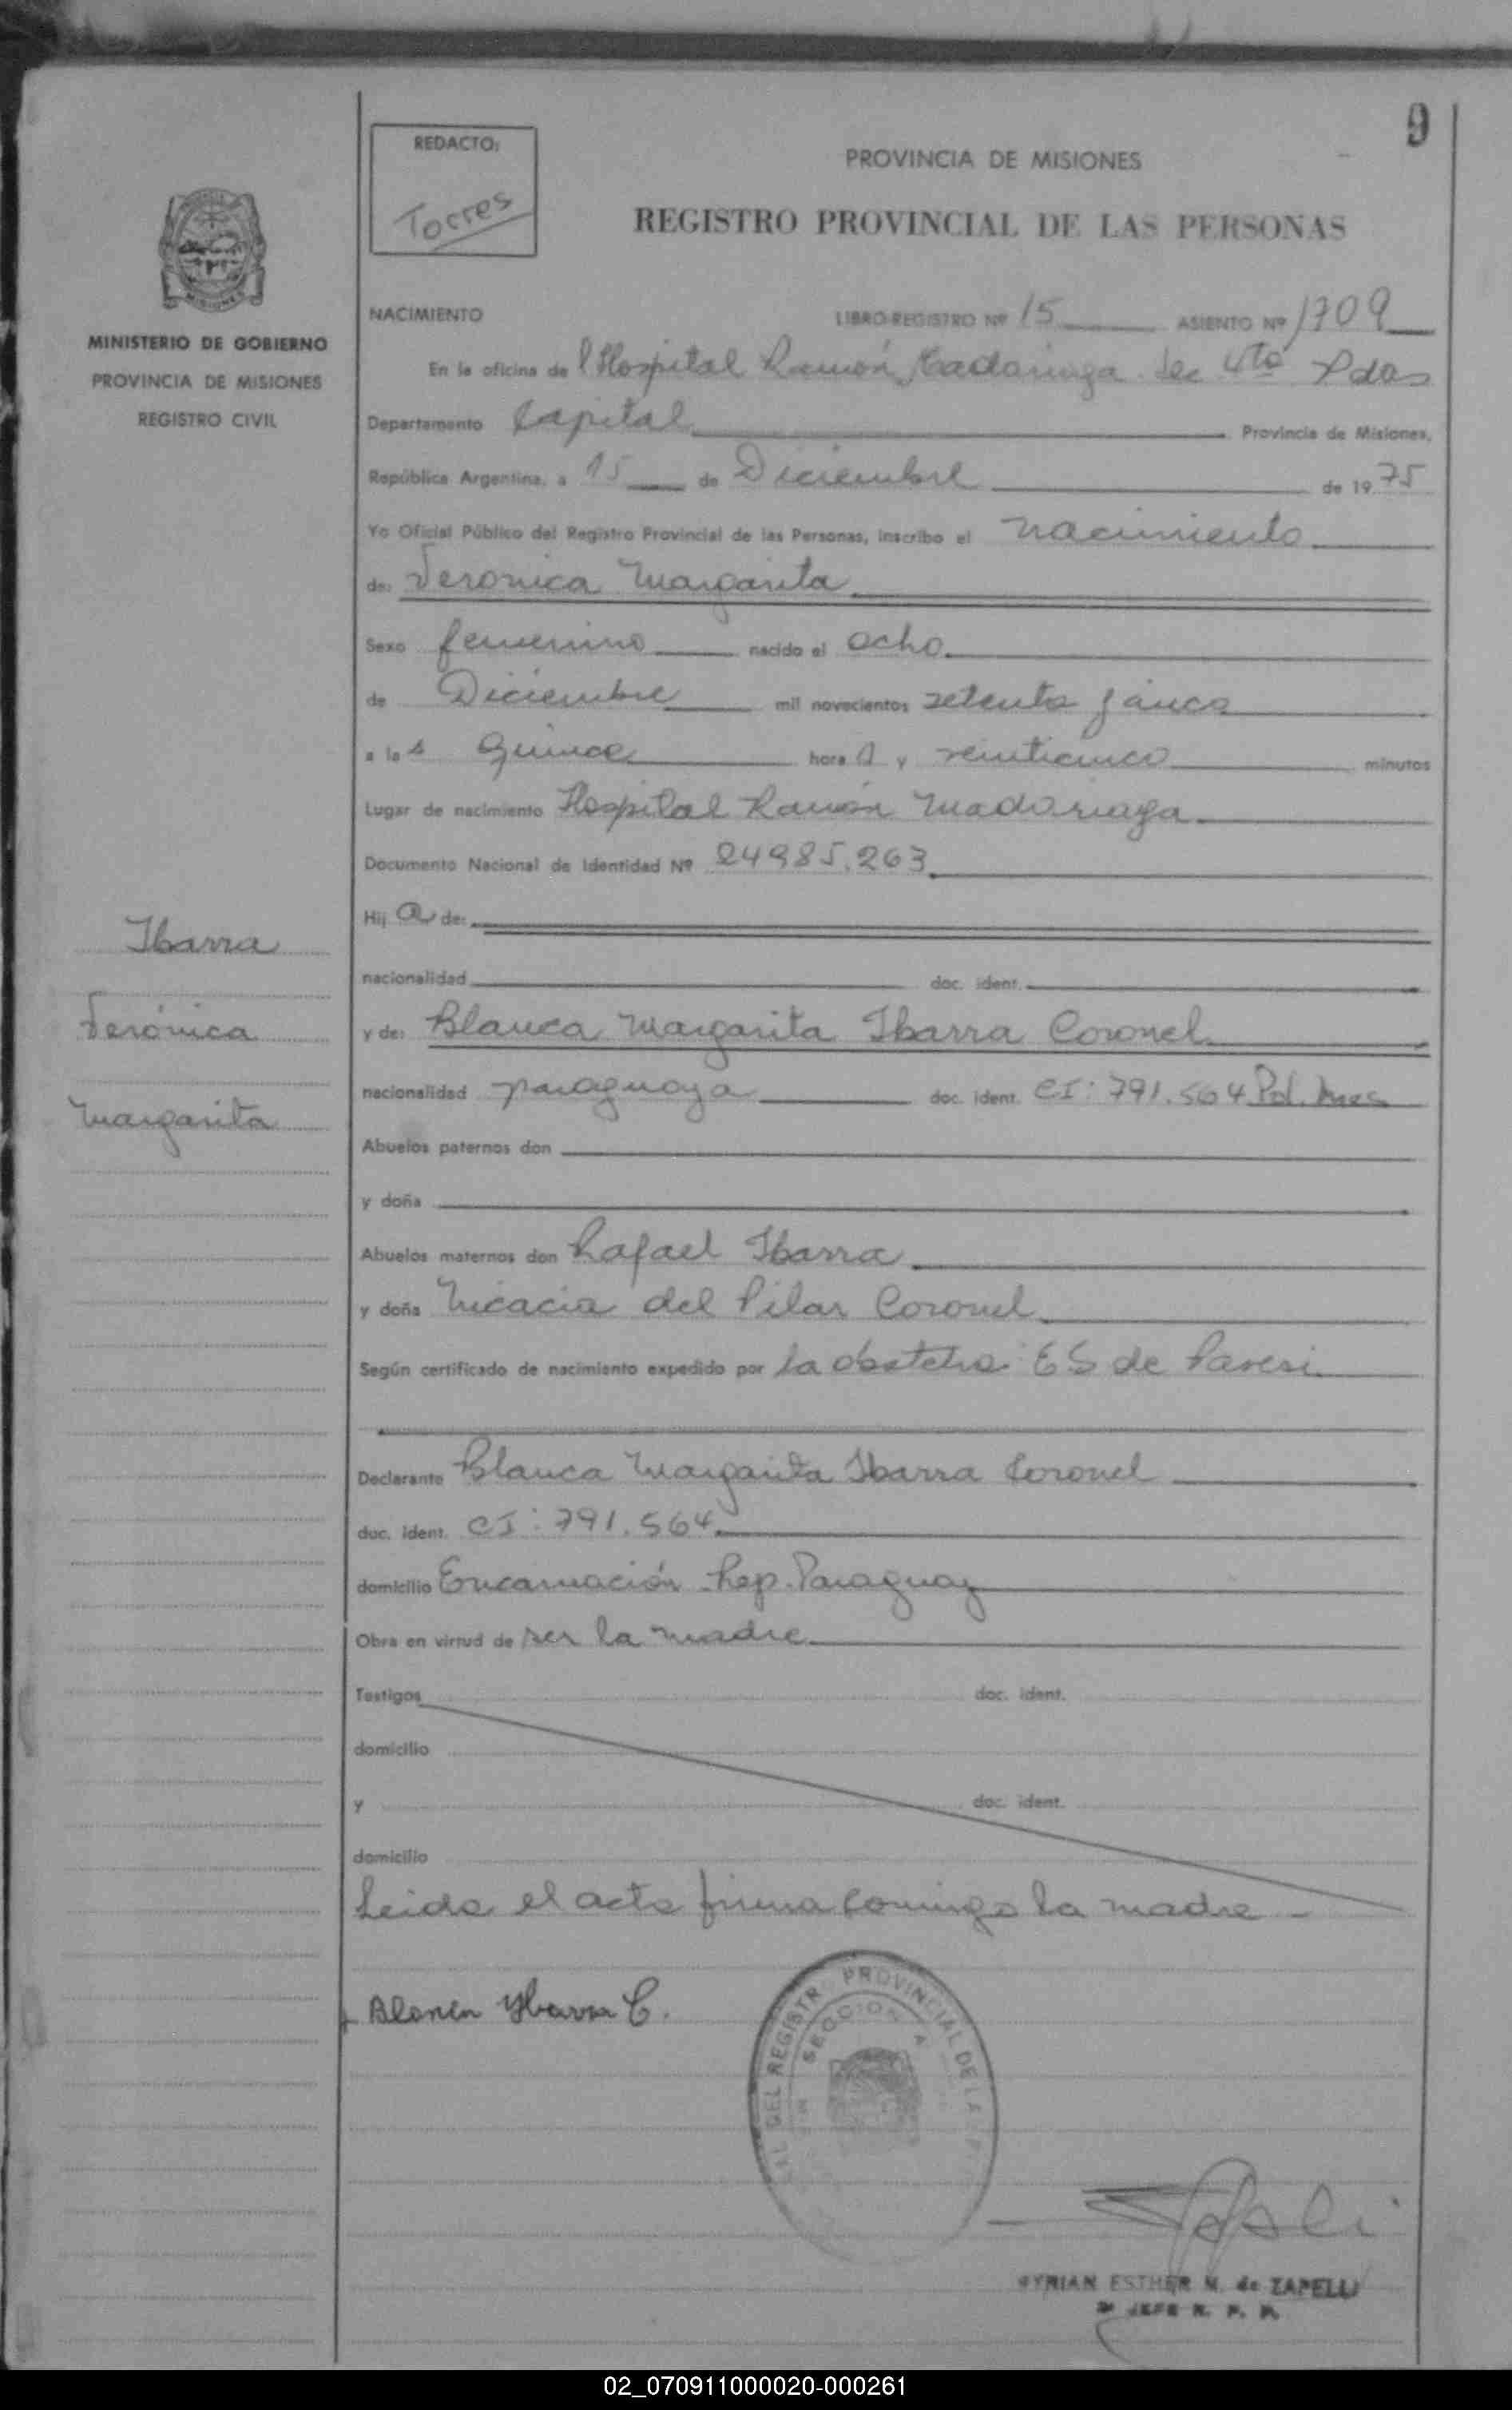 9
REDACTO:
Torres
PROVINCIA DE MISIONES
REGISTRO PROVINCIAL DE LAS PERSONAS
MISIONES
MINISTERIO DE GOBIERNO
PROVINCIA DE MISIONES
REGISTRO CIVIL
NACIMIENTO LIBRO-REGISTRO Nº 15 ASIENTO Nº 1709
En la oficina del Hospital Ramón Madariaga Sec 4ta Pdas
Departamento Capital Provincia de Misiones,
República Argentina, a 15 de Diciembre de 1975
Yo Oficial Público del Registro Provincial de las Personas, inscribo el nacimiento
de: Veronica Margarita
Sexo femenino nacido el ocho
de Diciembre mil novecientos setenta y cinco
a las quince horas y veinticinco minutos
Lugar de nacimiento Hospital Ramón Madariaga
Documento Nacional de Identidad Nº 24985.263
Hija de:
nacionalidad doc. ident.
Ibarra
Verónica
Margarita
y de: Blanca Margarita Ibarra Coronel
nacionalidad paraguaya doc. ident. CI: 791.564 Pol. Mnes
Abuelos paternos don
y doña
Abuelos maternos don Rafael Ibarra
y doña Nicacia del Pilar Coronel
Según certificado de nacimiento expedido por la obstetra ES de Paresi
Declarante Blanca Margarita Ibarra Coronel
doc. ident. CI: 791.564
domicilio Encarnación Rep. Paraguay
Obra en virtud de ser la madre
Testigos doc. ident.
domicilio
y doc. ident.
domicilio
Leida el acta firma conmigo la madre -
Blanca Ybarra C.
DEL REGISTRO PROVINCIAL DE LA
SECCION
MYRIAN ESTHER M. de ZAPELLI
JEFE R. P. P.
02_070911000020-000261